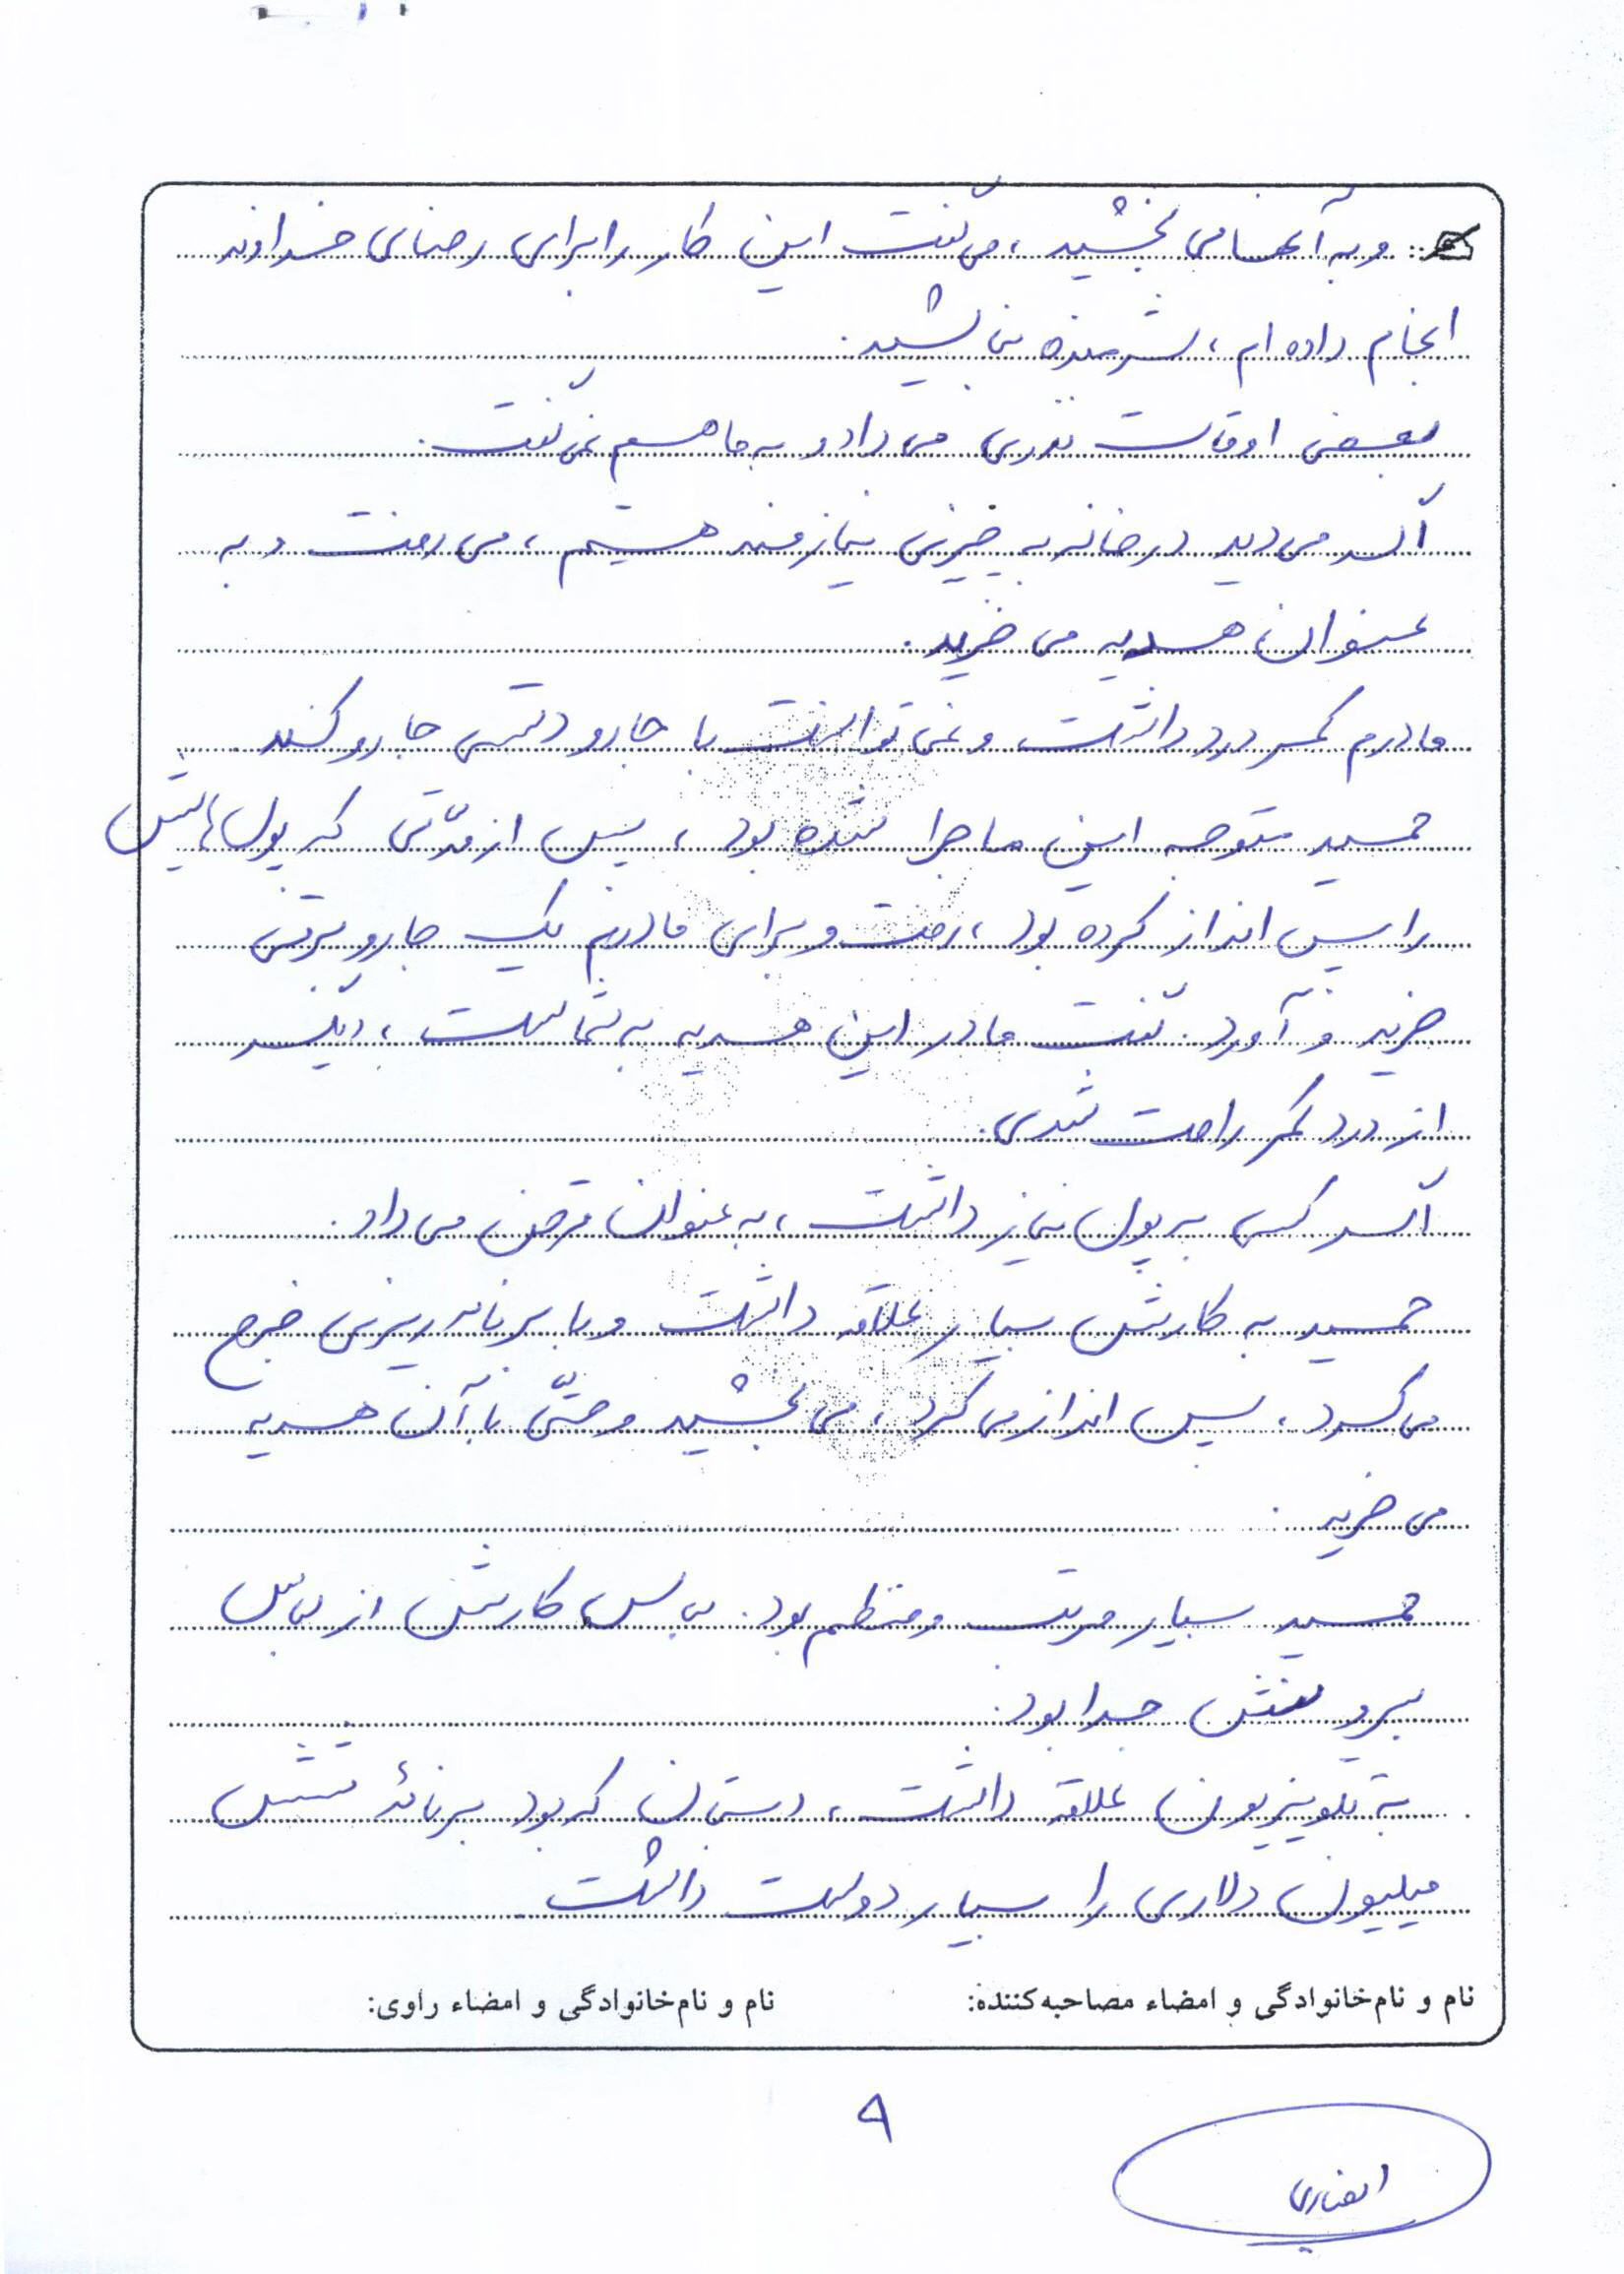 و به آنها می بخشید، می گفت این کار را برای رضای خداوند
انجام داده ام، شرمنده نباشید.
بعضی اوقات نذری می داد و به ما هم نمی گفت.
اگر می دید در خانه به چیزی نیازمند هستیم، می رفت و به
عنوان هدیه می خرید.
مادرم کمر درد داشت و نمی توانست با جارو دستی جارو کند.
حمید متوجه این ماجرا شده بود، پس از مدّتی که پول هایش
را پس انداز کرده بود، رفت و برای مادرم یک جارو برقی
خرید و آورد. گفت مادر این هدیه به شماست، دیگر
از درد کمر راحت شدی.
اگر کسی به پول نیاز داشت، به عنوان قرض می داد.
حمید به کارش بسیار علاقه داشت و با برنامه ریزی خرج
می کرد، پس انداز می کرد، می بخشید و حتّی با آن هدیه
می خرید.
حمید بسیار مرتب و منظم بود. لباس کارش از لباس
بیرونش جدا بود.
به تلویزیون علاقه داشت، دبستان که بود برنامهٔ شش
میلیون دلاری را بسیار دوست داشت
نام و نام‌خانوادگی و امضاء مصاحبه‌کننده: نام و نام‌خانوادگی و امضاء راوی:
۹
انصاری